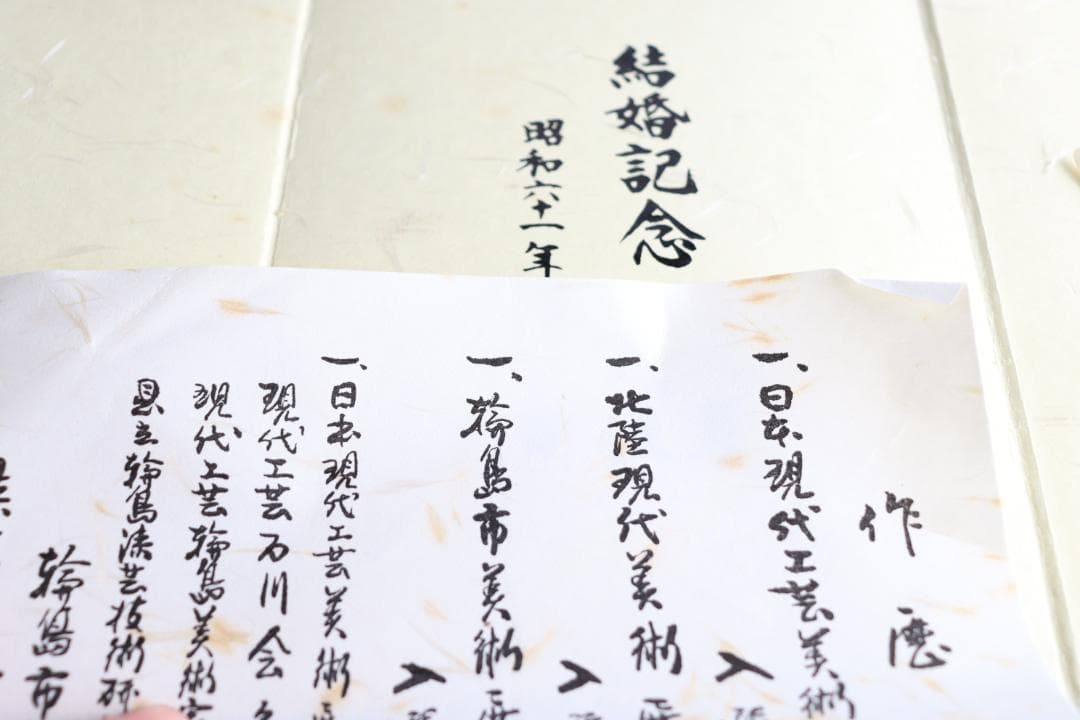 結婚記念
昭和六十一年
作歴
一、日本現代工芸美術
入
一、北陸現代美術
入
一、輪島市美術
入
一、日本現代工芸美術
現代工芸石川会
現代工芸輪島美術
県立輪島漆芸技術研
輪島市